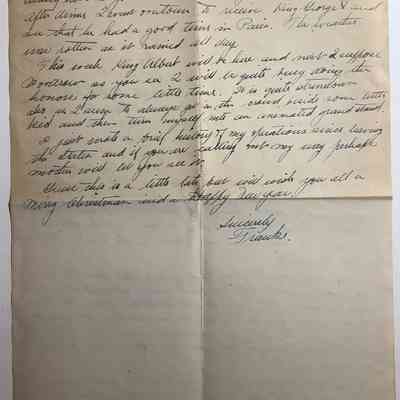 after dinner I went downtown to receive King George V and
see that he had a good time in Paris. The weather
was rotten as it rained all day.
This week King Albert will be here and next I suppose
Woodrow so you see I will be quite busy doing the
honors for some little time. It is quite strenuous
also as I seem to always get in the crowd beside some little
kid and then turn myself into an animated grand stand.
I just wrote a brief history of my operations since leaving
the states and if you are cutting out my way perhaps
mother will let you see it.
Guess this is a little late but will wish you all a
Merry Christmas and a Happy New year.
Sincerely